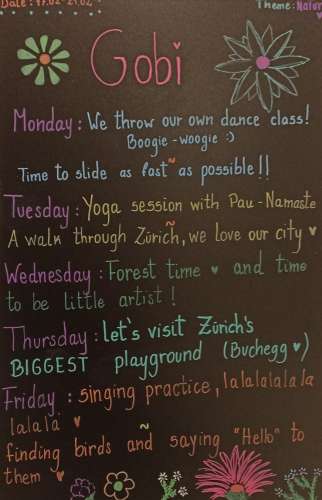 Date: 17.02-21.02
Theme: Natur
Gobi
Monday: We throw our own dance class!
Boogie-woogie :)
Time to slide as fast~ as possible!!
Tuesday: Yoga session with Pau-Namaste
A walk through Zürich, we love our city ♥
Wednesday: Forest time ♥ and time
to be little artist!
Thursday: let's visit Zürich's
BIGGEST playground (Buchegg ♥)
Friday: singing practice, lalalalala la
lalala ♥
finding birds and saying "Hello" to
them ♥